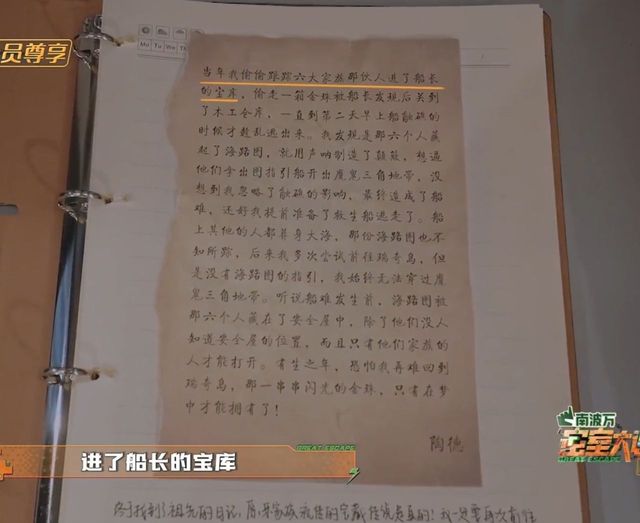 员尊享
Mo Tu We Th
当年我偷偷跟踪六大家族那伙人进了船长
的宝库，偷走一箱金珠被船长发现后关到
了木工仓库，一直到第二天早上船触礁的
时候才趁乱逃出来。我发现是那六个人藏
起了海路图，就用声呐制造了颠簸，想逼
他们拿出图指引船开出魔鬼三角地带，没
想到我忽略了触礁的影响，最终造成了船
难，还好我提前准备了救生船逃走了。船
上其他的人都葬身大海，那份海路图也不
知所踪，后来我多次尝试前往瑞奇岛，但
是没有海路图的指引，我始终无法穿过魔
鬼三角地带。听说船难发生前，海路图被
那六个人藏在了安全屋中，除了他们没人
知道安全屋的位置，而且只有他们家族的
人才能打开。有生之年，恐怕我再难回到
瑞奇岛，那一串串闪光的金珠，只有在梦
中才能拥有了！
陶德
南波万
密室大
GREAT ESCAPE
进了船长的宝库
GREAT ESCAPE
终于找到了祖先的日记，原来家族流传的宝藏传说是真的！我一定要再次前往